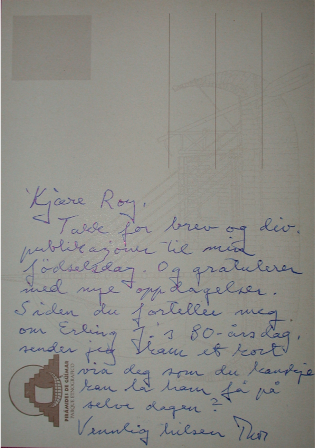 Kjære Roy.
Takk for brev og div.
publikasjoner til min
fødselsdag. Og gratulerer
med nye oppdagelser.
Siden du forteller meg
om Erling J.'s 80-årsdag,
sender jeg ham et kort
via deg som du kanskje
kan la ham få på
selve dagen?
Vennlig hilsen Thor
PIRÁMIDES DE GÜÍMAR
PARQUE ETNOGRÁFICO